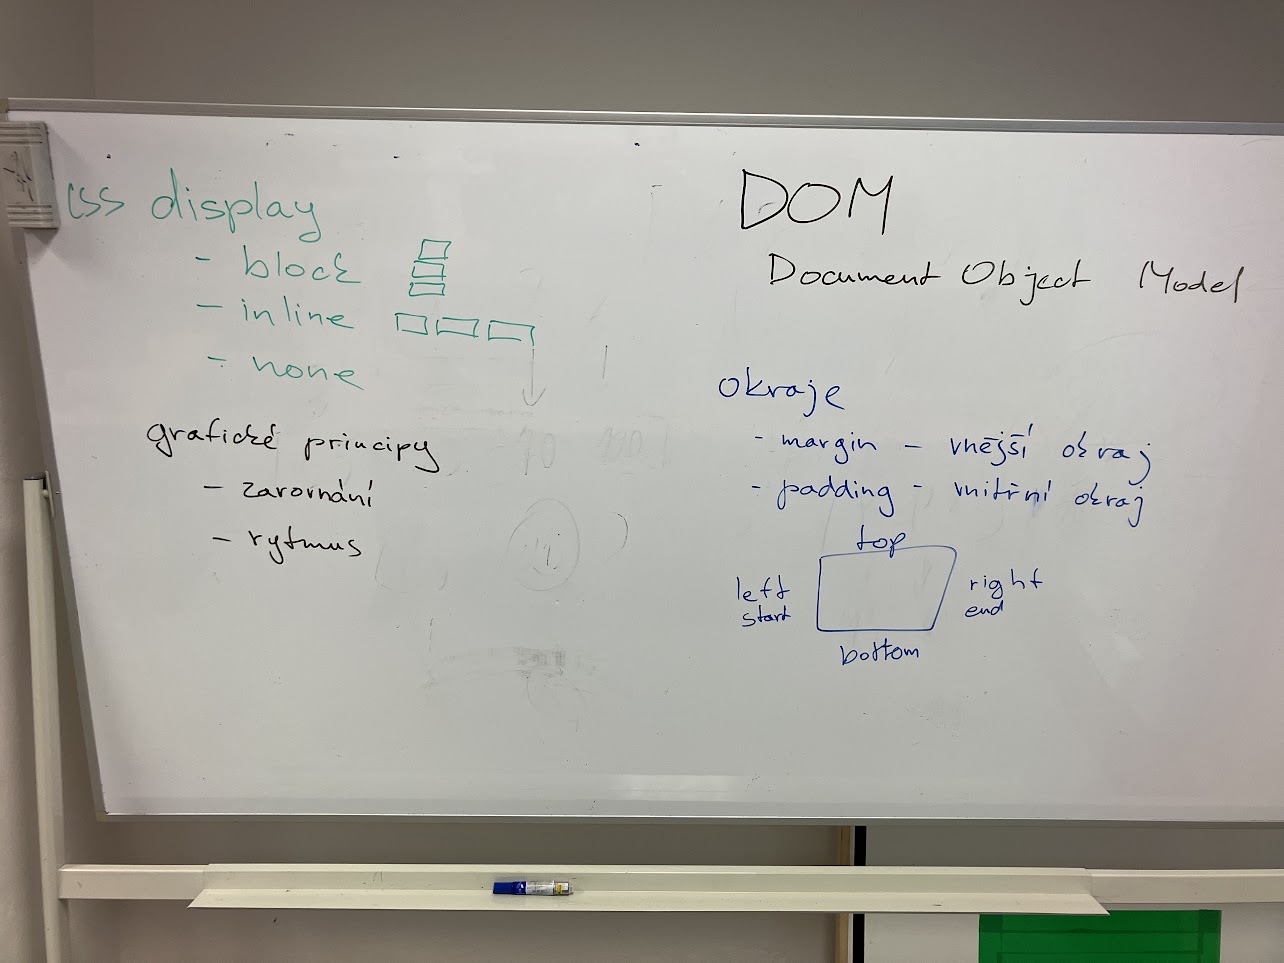 css display
- block
- inline
- none
grafické principy
- zarovnání
- rytmus
DOM
Document Object Model
okraje
- margin - vnější okraj
- padding - vnitřní okraj
top
left
start
right
end
bottom